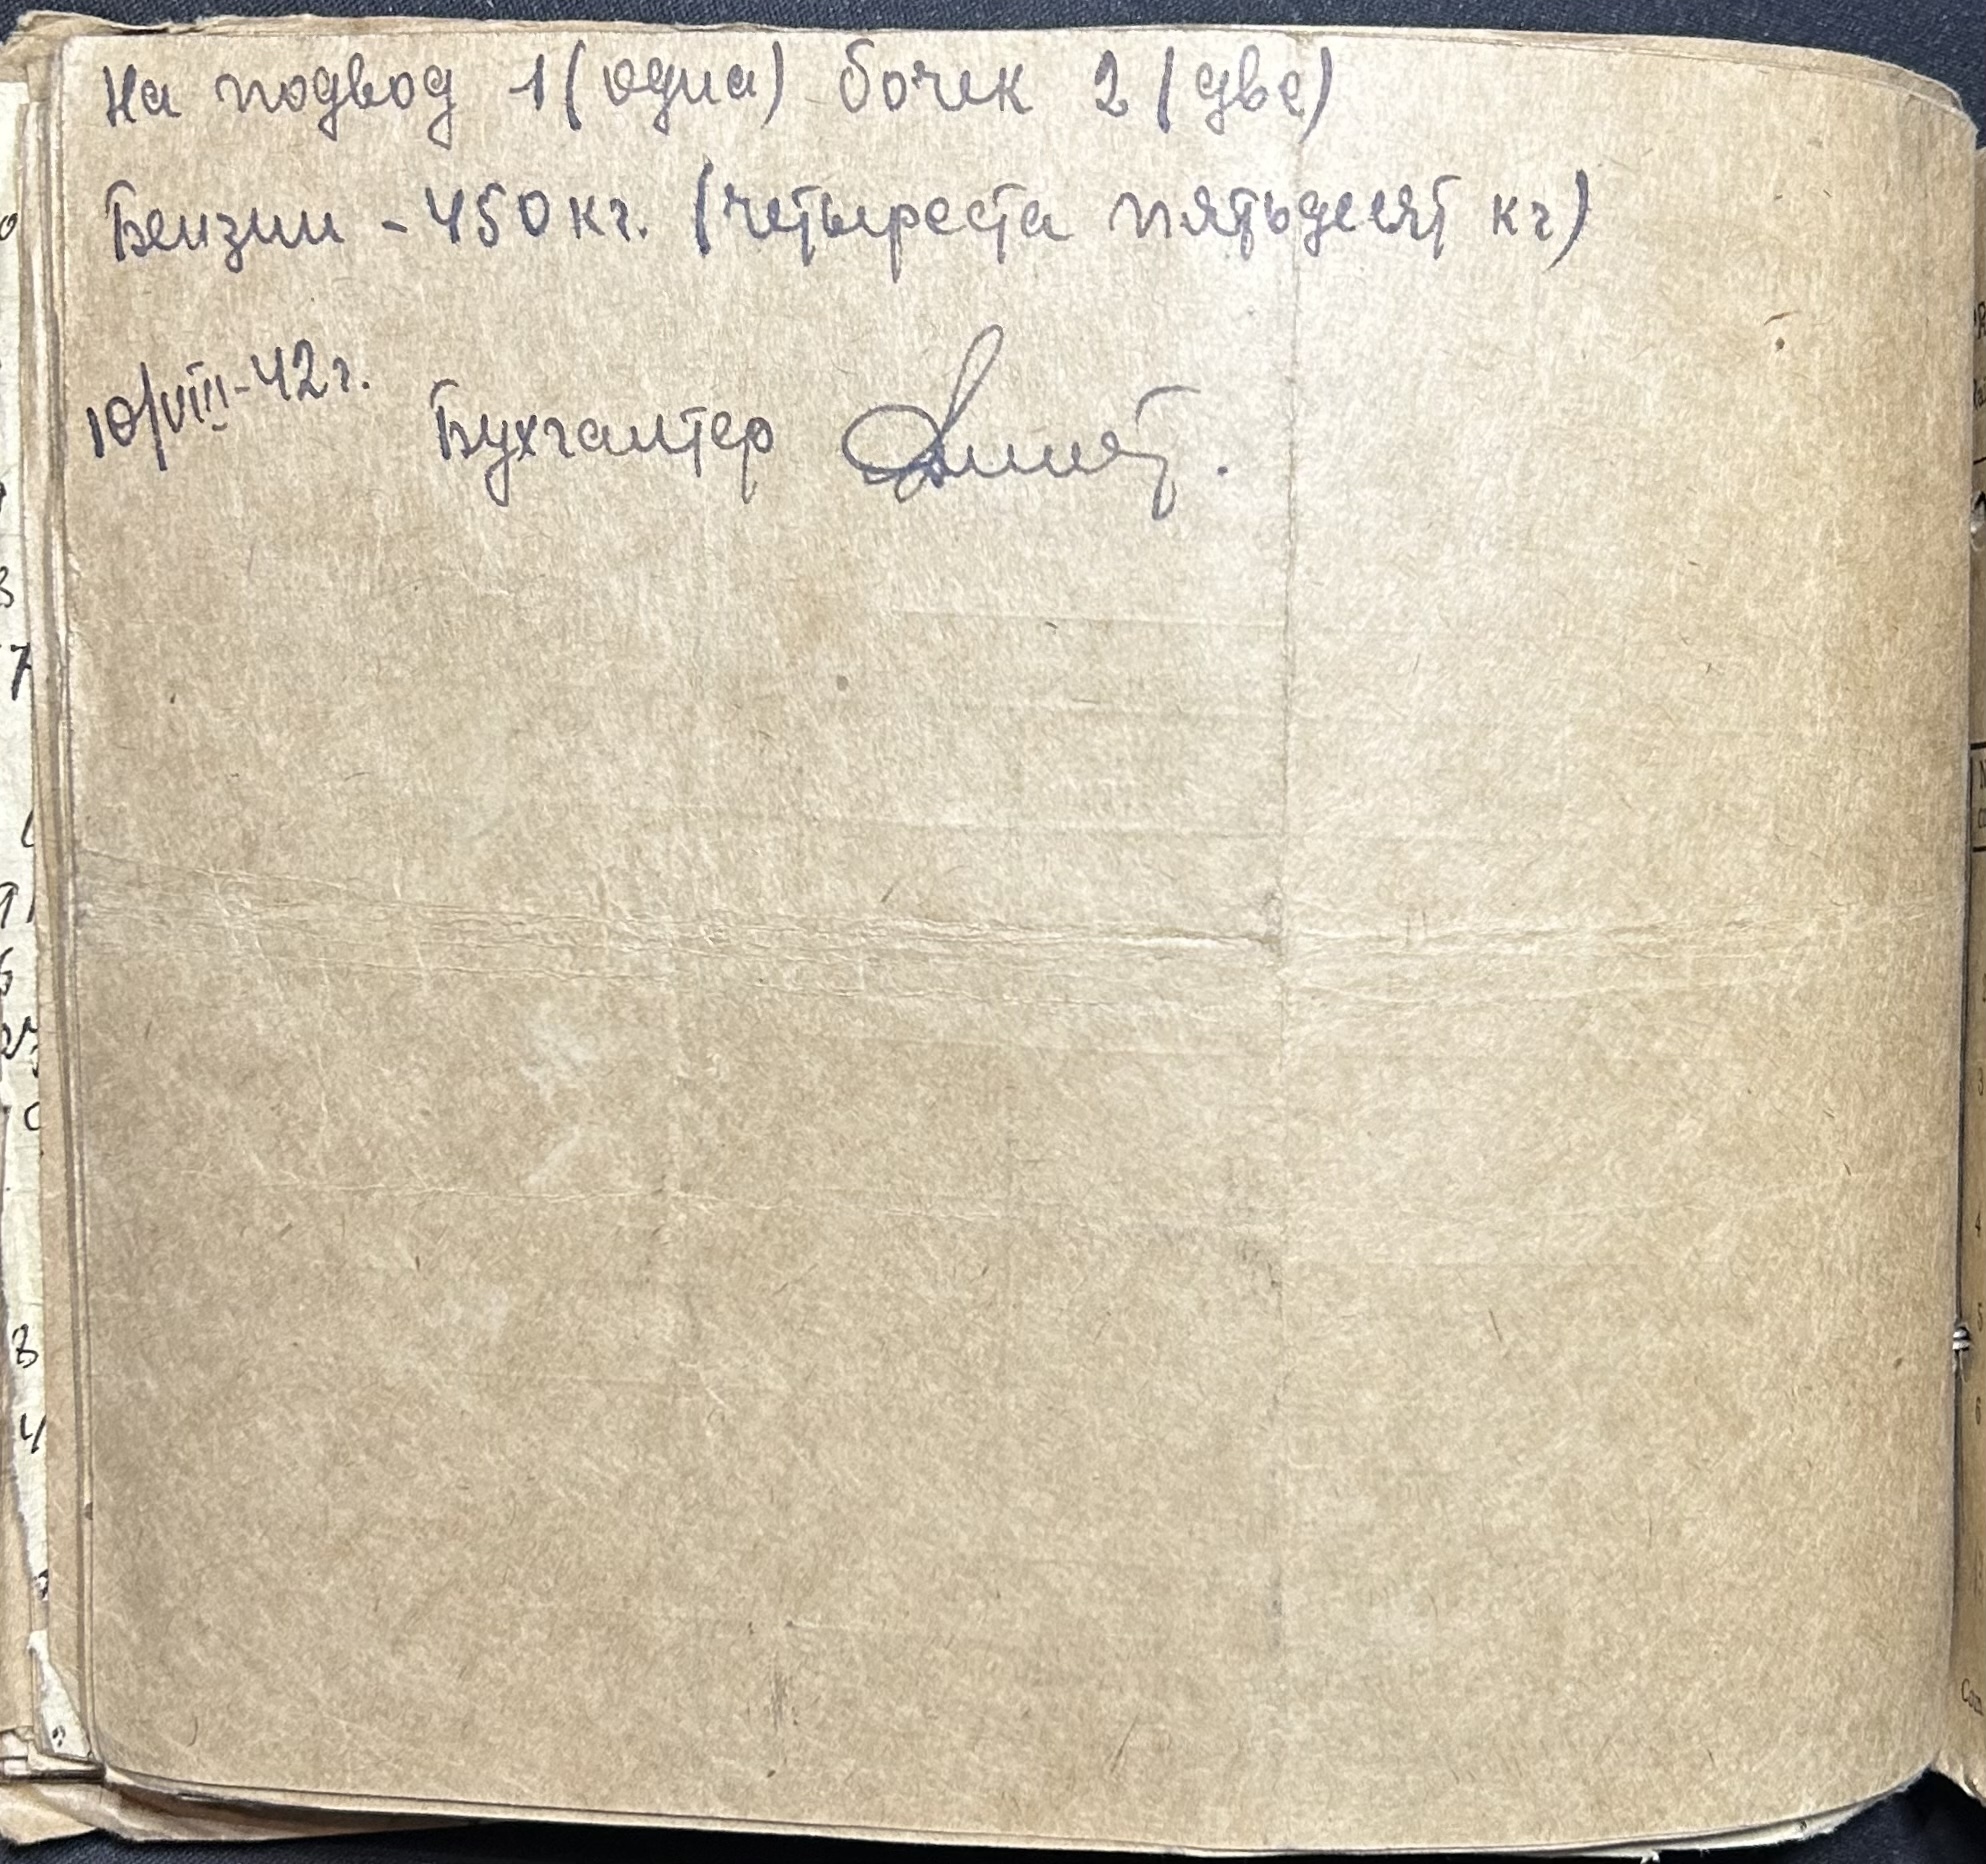 На подвод 1 (одна) бочек 2 (две)
Бензин - 450 кг. (четыреста пятьдесят кг)
10/VIII-42г. Бухгалтер